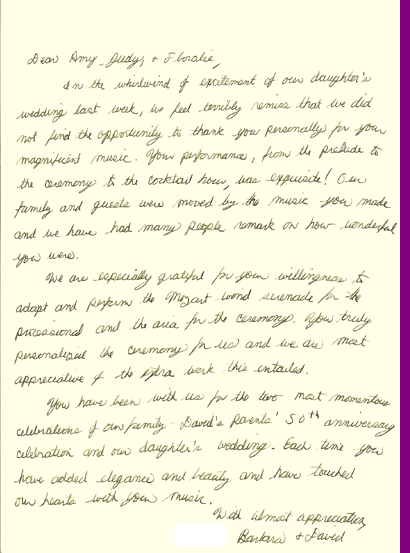 Dear Amy, Judy, & Floralie,
In the whirlwind of excitement of our daughter's
wedding last week, we feel terribly remiss that we did
not find the opportunity to thank you personally for your
magnificent music. Your performance, from the prelude to
the ceremony to the cocktail hour, was exquisite! Our
family and guests were moved by the music you made
and we have had many people remark on how wonderful
you were.
We are especially grateful for your willingness to
adapt and perform the Mozart wind serenade for the
processional and the area for the ceremony. You truly
personalized the ceremony for us and we are most
appreciative of the extra work this entailed.
You have been with us for the two most momentous
celebrations of our family - David's parents' 50th anniversary
celebration and our daughter's wedding. Each time you
have added elegance and beauty and have touched
our hearts with your music.
With utmost appreciation,
Barbara & David